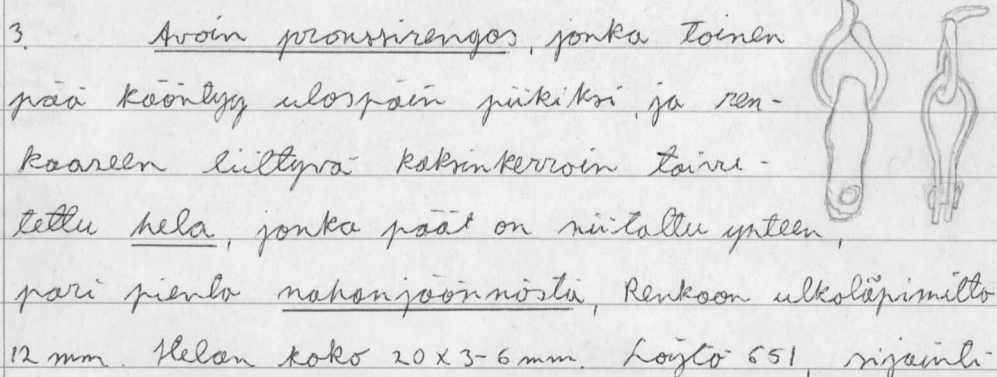 3. Avoin pronssirengas, jonka toinen
pää kääntyy ulospäin piikiksi, ja ren-
kaaseen liittyvä kaksinkerroin taivu-
tettu hela, jonka päät on niitattu yhteen,
pari pientä nahanjäännöstä, Renkaan ulkoläpimitta
12 mm. Helan koko 20 x 3-6 mm. Löytö 651, sijainti